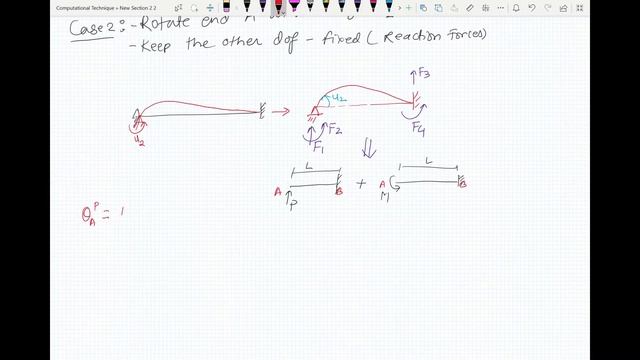 Computational Technique • New Section 2.2
Case 2:- Rotate end A
- Keep the other dof - fixed (Reaction Forces)
u2
u2
F1
F2
F3
F4
L
A
B
P
+
L
A
B
M
θ_A^P =